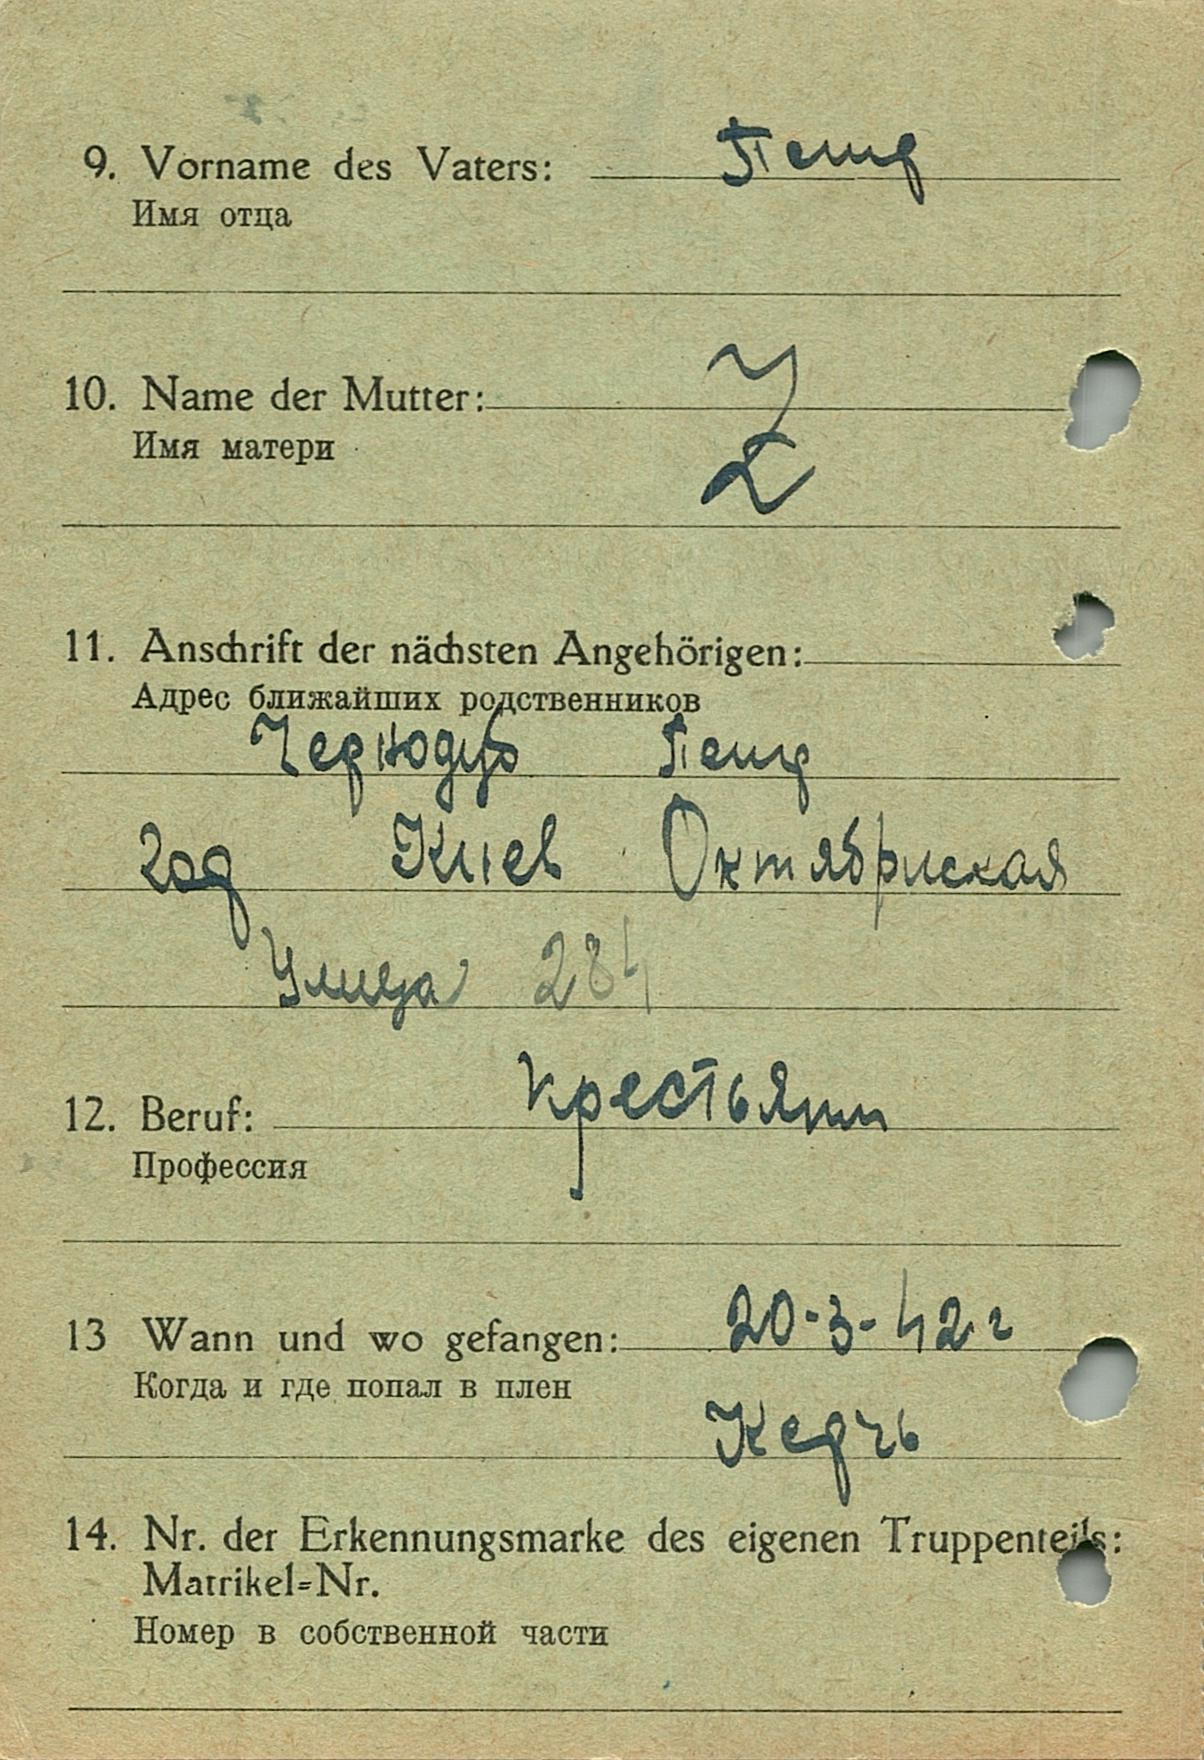 9. Vorname des Vaters: Петр
Имя отца
10. Name der Mutter:
Имя матери
11. Anschrift der nächsten Angehörigen:
Адрес ближайших родственников
Чернодуб Петр
год Киев Октябриская
Улица 284
12. Beruf: крестьянин
Профессия
13 Wann und wo gefangen: 20-3-42 г
Когда и где попал в плен
Керчь
14. Nr. der Erkennungsmarke des eigenen Truppenteils:
Matrikel=Nr.
Номер в собственной части